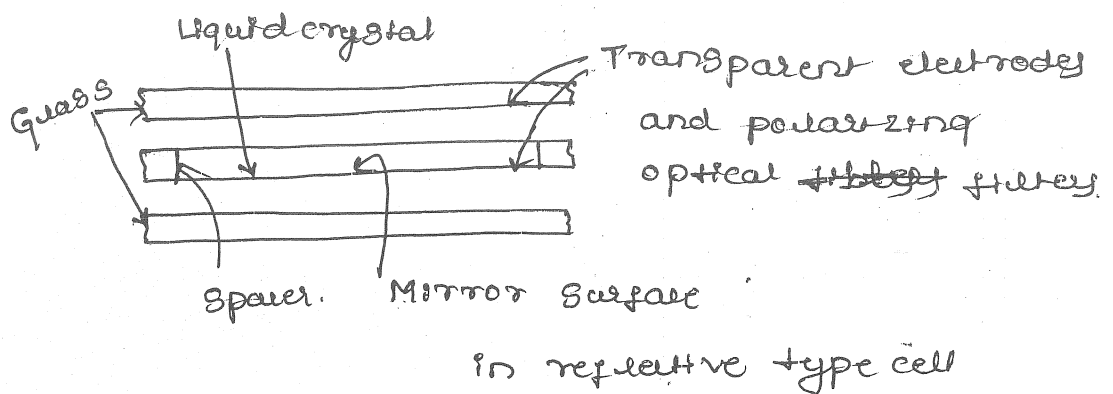 Liquid crystal
Transparent electrodes
Glass
and polarizing
optical filters.
Spacer.
Mirror surface
in reflective type cell